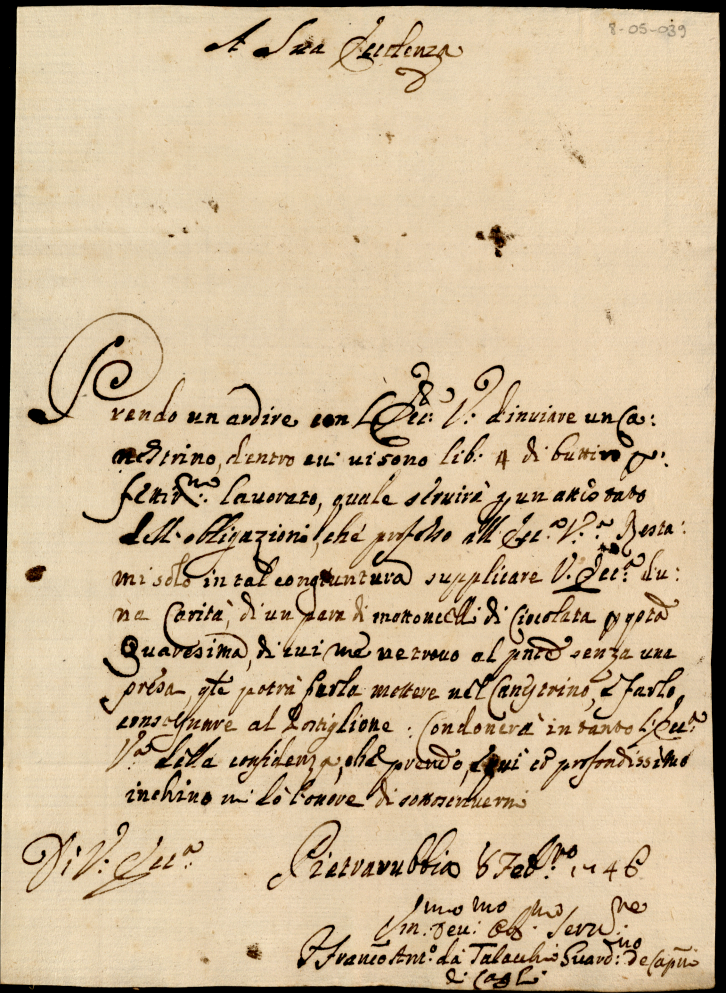 8-05-039
A Sua Eccelenza
Prendo un ardire con L'Ecc: V: d'inviare un Ca:
nestrino, dentro cui vi sono lib: 4 di buttiro p:
lavorato, quale servirà p un attestato
dell'obligazioni, che professo all'Ecc.a V.a Resta:
mi solo in tal congiuntura supplicare V. Ecc.a du:
na Carità, di un paro di mattoncelli di Ciocolata p q.ta
Quaresima, di cui me ne trovo al p.nte senza una
presa, q.le potrà farla mettere nel Canestrino, e farlo
consegnare al Postiglione. Condonerà in tanto L'Ecc.a
V.a della confidenza, che prendo, e qui co profondissimo
inchino mi dò l'onore di sottoscrivermi
Di V: Ecc.a
Pietrarubbia 8 Feb.ro 1746
Um.mo Dev.mo Obb.mo Serv.re
F. Franc.o Ant.o da Talacchio Guard.no de Capni
di Cagli